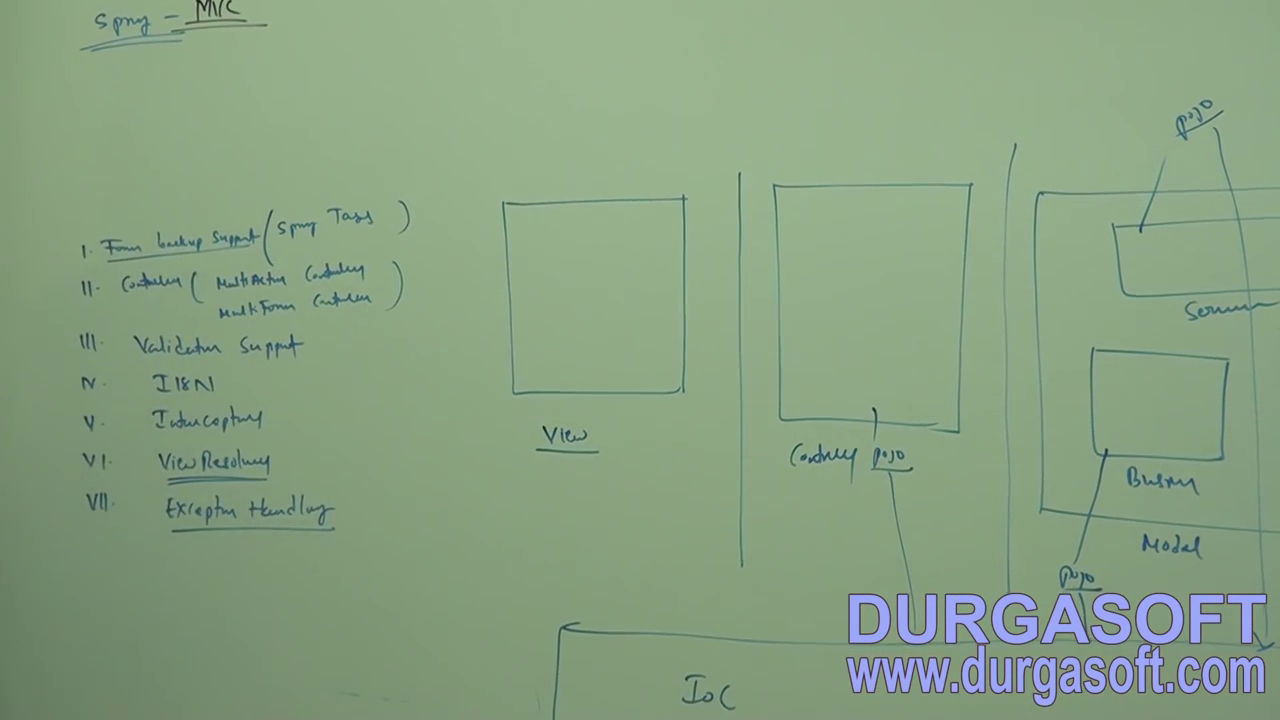 Spring - MVC
I. Form backup Support (Spring Tags)
II. Controller ( MultiAction Controller
MultiForm Controller )
III. Validator Support
IV. I18N
V. Interceptory
VI. View Resolvery
VII. Exception Handling
View
Controller pojo
pojo
Business
Model
pojo
IOC
DURGASOFT
www.durgasoft.com